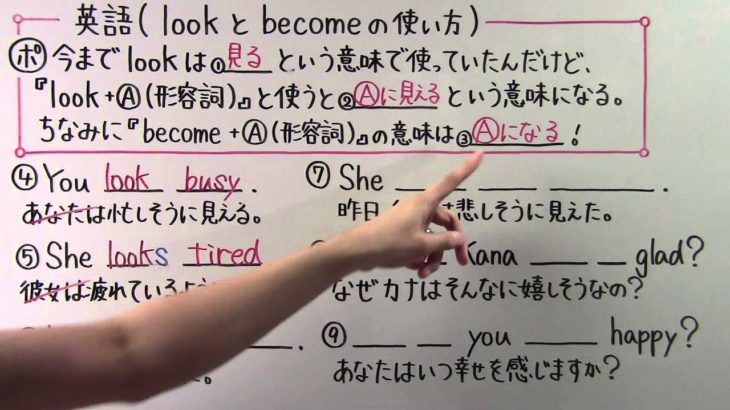 英語(lookとbecomeの使い方)
ポ 今までlookは①見るという意味で使っていたんだけど、
『look+Ⓐ(形容詞)』と使うと②Ⓐに見えるという意味になる。
ちなみに『become+Ⓐ(形容詞)』の意味は③Ⓐになる!
④You look busy.
あなたは忙しそうに見える。
⑤She looks tired
彼女は疲れているよう
⑦She ____ ____ ____.
昨日 は悲しそうに見えた。
Kana ____ __ glad?
なぜカナはそんなに嬉しそうなの?
⑨____ ____ you ____ happy?
あなたはいつ幸せを感じますか?